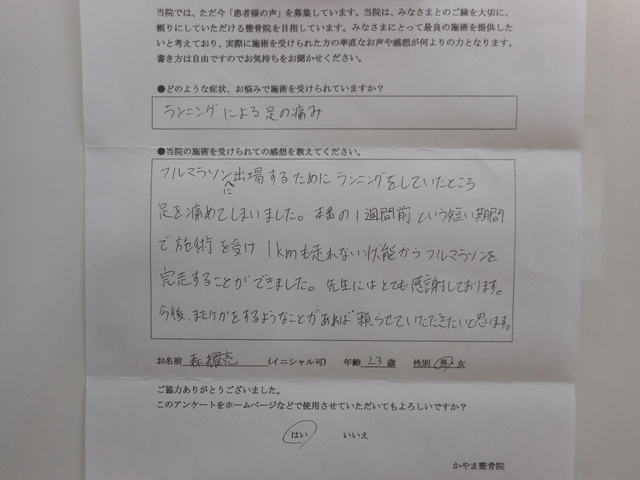 当院では、ただ今「患者様の声」を募集しています。当院は、みなさまとのご縁を大切に、
頼りにしていただける整骨院を目指しています。みなさまにとって最良の施術を提供した
いと考えており、実際に施術を受けられた方の率直なお声や感想が何よりの力となります。
書き方は自由ですのでお気持ちをお聞かせください。
●どのような症状、お悩みで施術を受けられていますか?
ランニングによる足の痛み
●当院の施術を受けられての感想を教えてください。
フルマラソンに出場するためにランニングをしていたところ
足を痛めてしまいました。本番の1週間前という短い期間
で施術を受け1kmも走れない状態からフルマラソンを
完走することができました。先生にはとても感謝しております。
今後、またケガをするようなことがあれば頼らせていただきたいと思います。
お名前 森 耀亮 (イニシャル可) 年齢 23 歳 性別 男・女
ご協力ありがとうございました。
このアンケートをホームページなどで使用させていただいてもよろしいですか?
はい いいえ
かやま整骨院